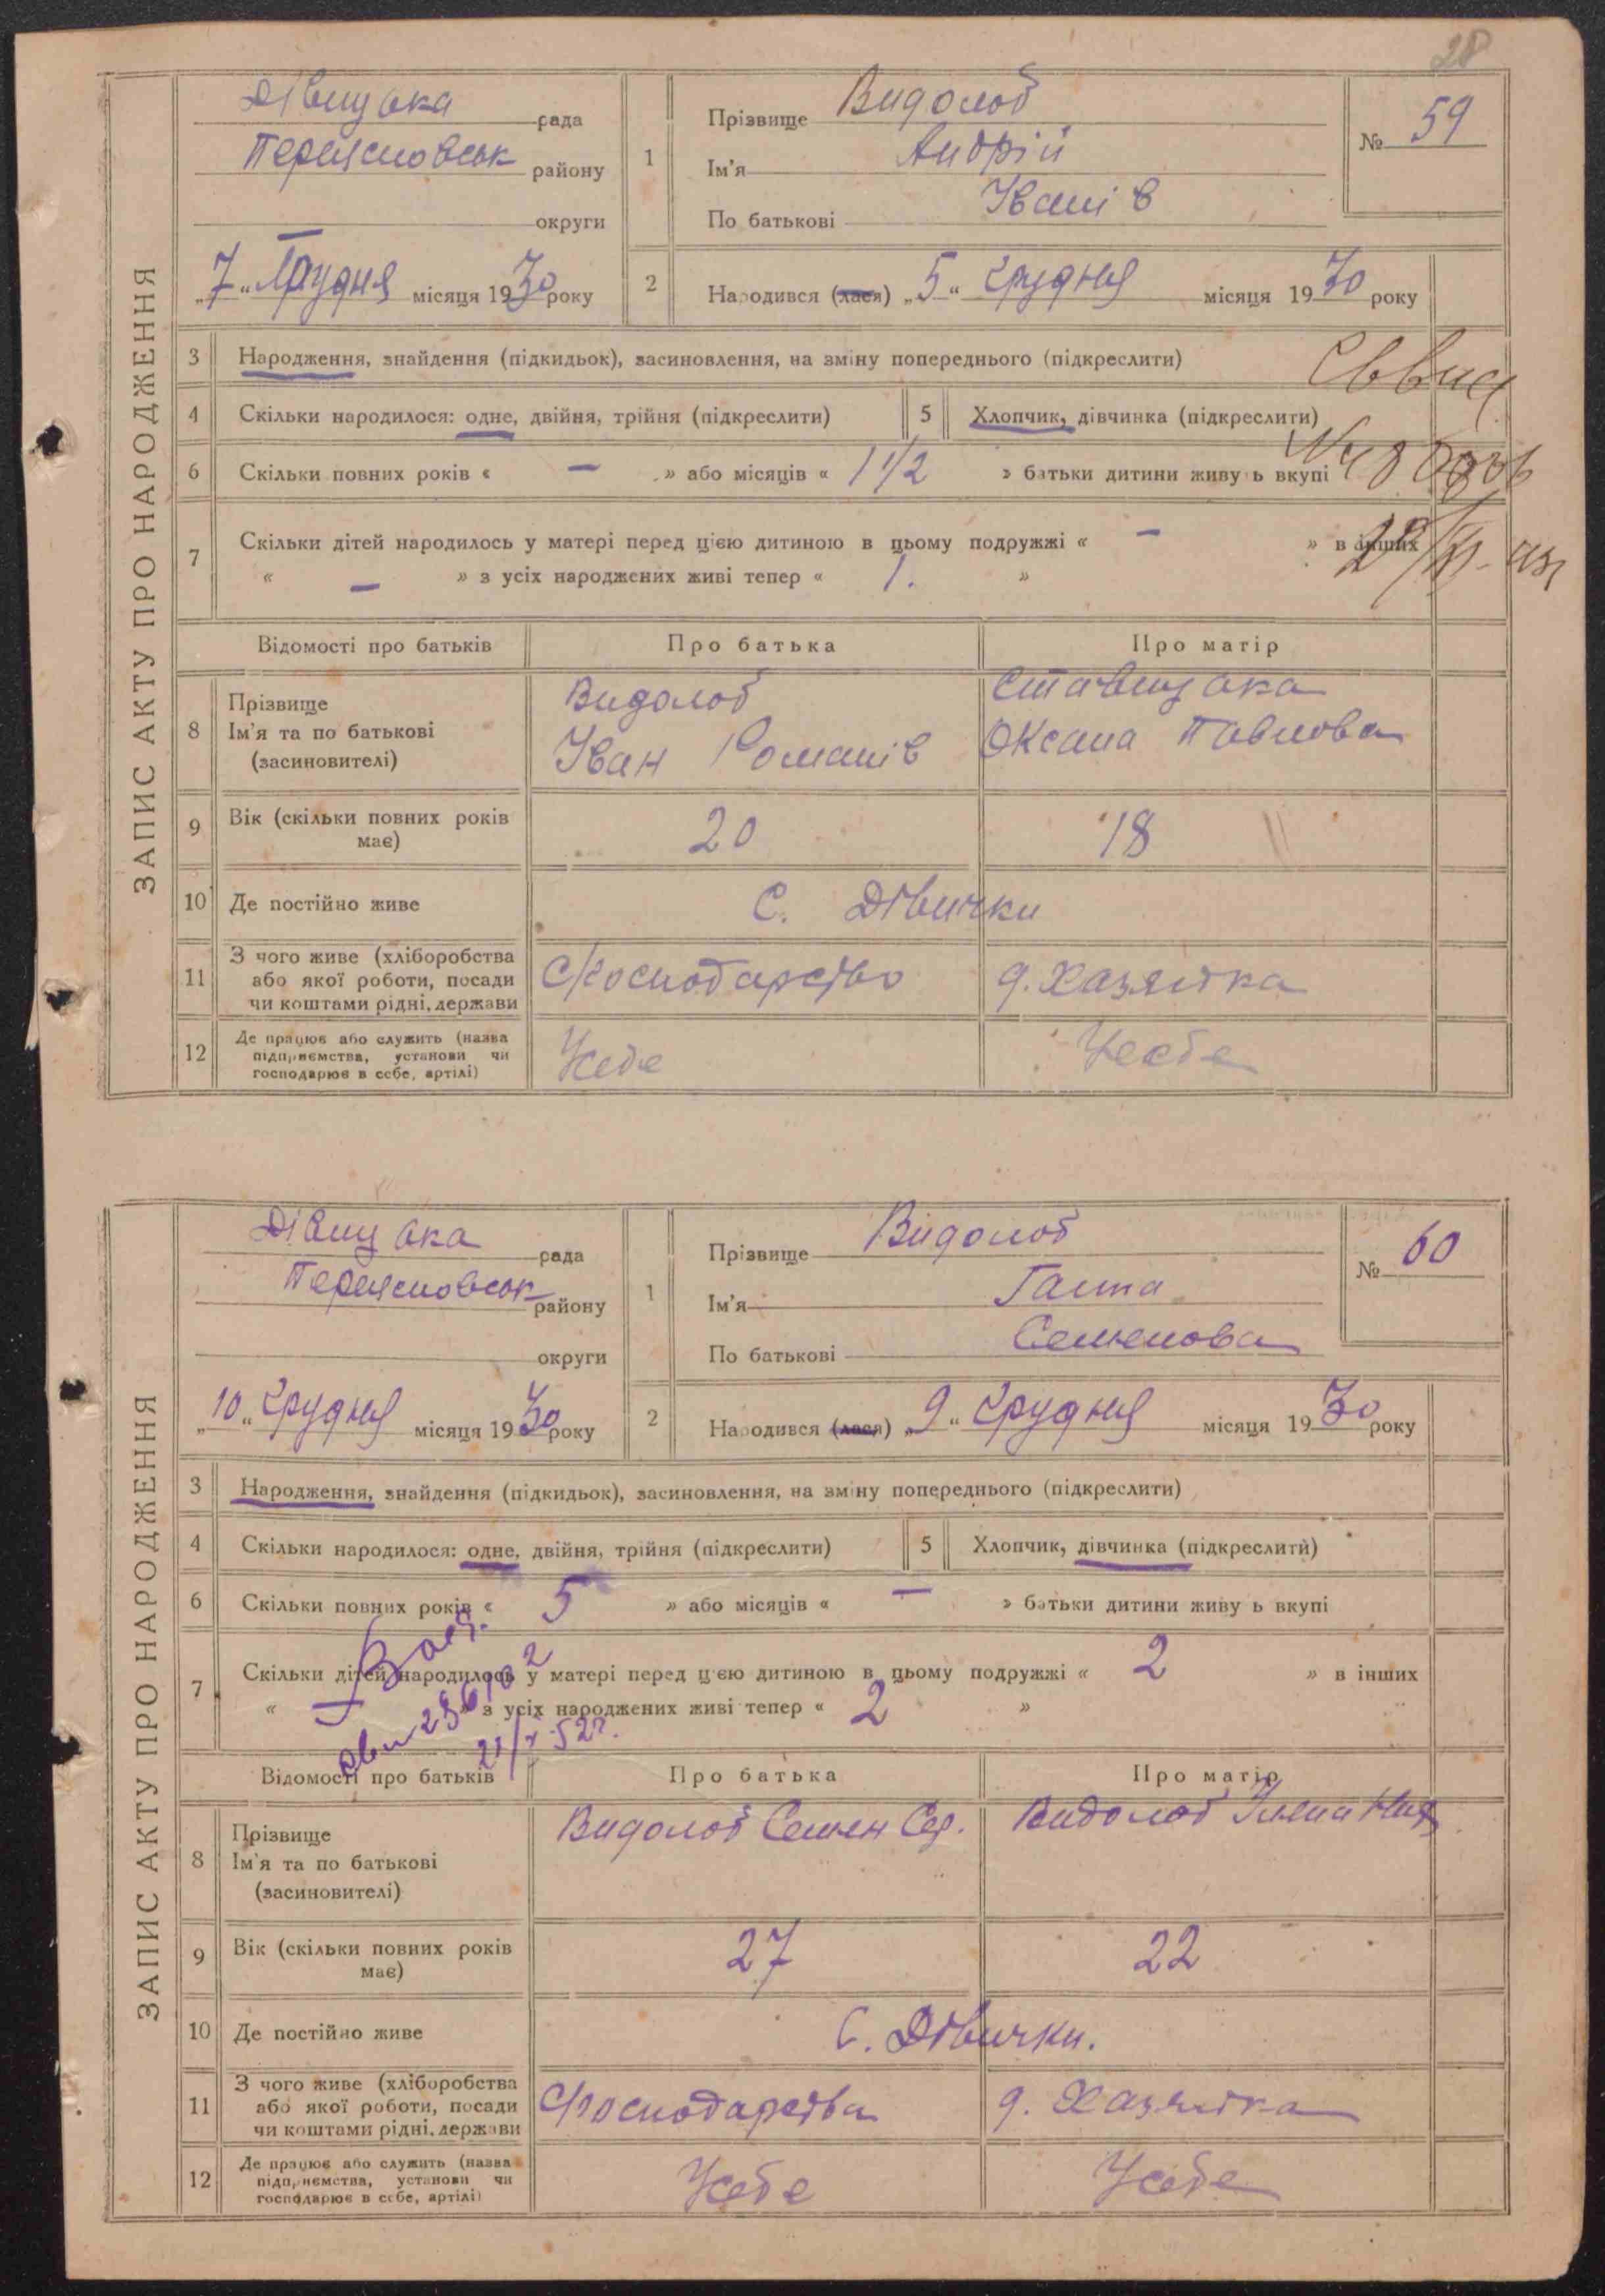 28
ЗАПИС АКТУ ПРО НАРОДЖЕННЯ
Дівицька рада
Переяславськ району
округи
„7“ Грудня місяця 1930 року
1
Прізвище Видолоб
Ім'я Андрій
По батькові Іванів
№ 59
2
Народився (лася) „5“ грудня місяця 1930 року
3 Народження, знайдення (підкидьок), засиновлення, на зміну попереднього (підкреслити)
4 Скільки народилося: одне, двійня, трійня (підкреслити) 5 Хлопчик, дівчинка (підкреслити)
6 Скільки повних років « — » або місяців « 1 1/2 » батьки дитини живуть вкупі
7 Скільки дітей народилось у матері перед цією дитиною в цьому подружжі « — » в інших
« — » з усіх народжених живі тепер « 1. »
Відомості про батьків Про батька Про матір
8 Прізвище
Ім'я та по батькові
(засиновителі)
Видолоб
Іван Романів
Ставицька
Оксана Павлова
9 Вік (скільки повних років має) 20 18
10 Де постійно живе С. Дівички
11 З чого живе (хліборобства
або якої роботи, посади
чи коштами рідні, держави
С/Господарство д. Хазяйка
12 Де працює або служить (назва
підприємства, установи чи
господарює в себе, артілі)
У себе У себе
ЗАПИС АКТУ ПРО НАРОДЖЕННЯ
Дівицька рада
Переяславськ району
округи
„10“ грудня місяця 1930 року
1
Прізвище Видолоб
Ім'я Ганна
По батькові Семенова
№ 60
2
Народився (лася) „9“ грудня місяця 1930 року
3 Народження, знайдення (підкидьок), засиновлення, на зміну попереднього (підкреслити)
4 Скільки народилося: одне, двійня, трійня (підкреслити) 5 Хлопчик, дівчинка (підкреслити)
6 Скільки повних років « 5 » або місяців « — » батьки дитини живуть вкупі
7 Скільки дітей народилось у матері перед цією дитиною в цьому подружжі « 2 » в інших
« » з усіх народжених живі тепер « 2 »
21/X 52г.
Відомості про батьків Про батька Про матір
8 Прізвище
Ім'я та по батькові
(засиновителі)
Видолоб Семен Сер.
Видолоб
9 Вік (скільки повних років має) 27 22
10 Де постійно живе С. Дівички.
11 З чого живе (хліборобства
або якої роботи, посади
чи коштами рідні, держави
С/Господарства д. Хазяйка
12 Де працює або служить (назва
підприємства, установи чи
господарює в себе, артілі)
У себе У себе